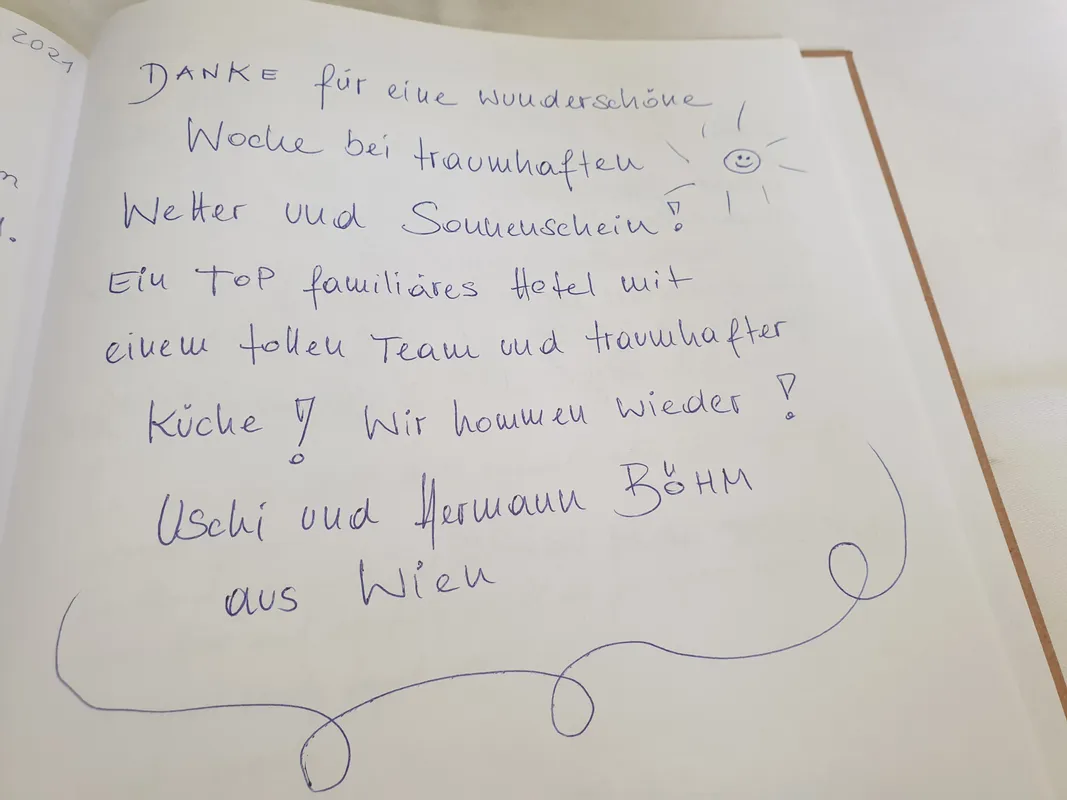 2021
DANKE für eine wunderschöne
Woche bei traumhaften
Wetter und Sonnenschein!
Ein TOP familiäres Hotel mit
einem tollen Team und traumhafter
Küche! Wir kommen wieder!
Uschi und Hermann BÖHM
aus Wien